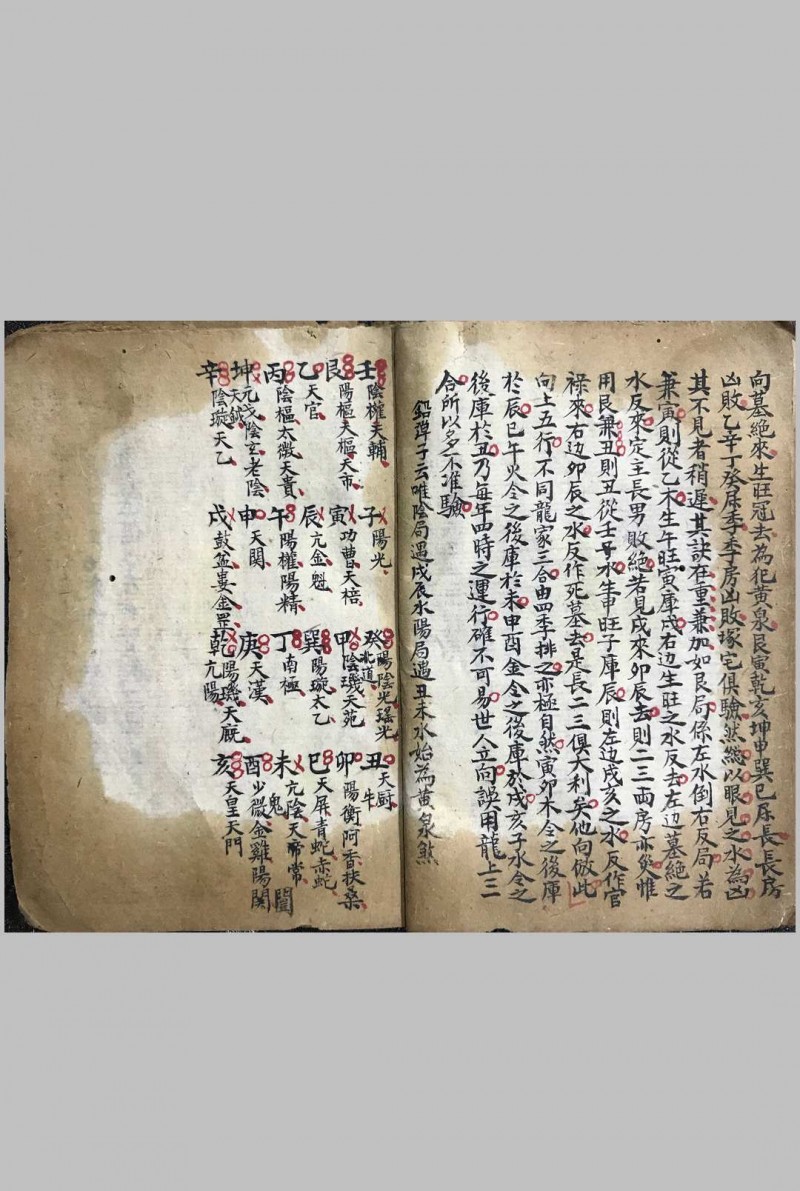 向墓絶來生旺冠去為犯黃泉艮寅乾亥坤申巽巳屬長長房
凶敗乙辛丁癸屬季季房凶敗塚宅俱驗然總以眼見之水為凶
其不見者稍遲其訣在重兼加如艮局係左水倒右反局若
兼寅則從乙木生午旺寅庫戌右边生旺之水反去左边墓絶之
水反來定主長男敗絶若見戌來卯辰去則二三両房亦災惟
用艮兼丑則丑從壬子水生申旺子庫辰則左边戌亥之水反作官
祿來右边卯辰之水反作死墓去是長二三俱大利矣他向倣此
向上五行不同龍家三合由四季排之亦極自然寅卯木令之後庫
於辰巳午火令之後庫於未申酉金令之後庫於戌亥子水令之
後庫於丑乃每年四時之運行確不可易世人立向誤用龍上三
合所以多不准驗
鉛彈子云唯陰局遇戌辰水陽局遇丑未水始為黃泉煞
壬陰權天輔 子陽光 癸陽陰光瑤光北道 丑天厨牛
艮陽樞天樞天市 寅功曹天棓 甲陰璣天苑 卯陽衡阿香扶桑
乙天官 辰亢金魁 巽陽璇太乙 巳天屏青蛇赤蛇
丙陰樞太微天貴 午陽權陽精 丁南極 未亢陰天常鬼
坤元戈陰玄老陰天鉞 申天関 庚天漢 酉少微金雞陽関
辛陰璇天乙 戌鼓盆婁金罡 乾陽璣天厩亢陽 亥天皇天門